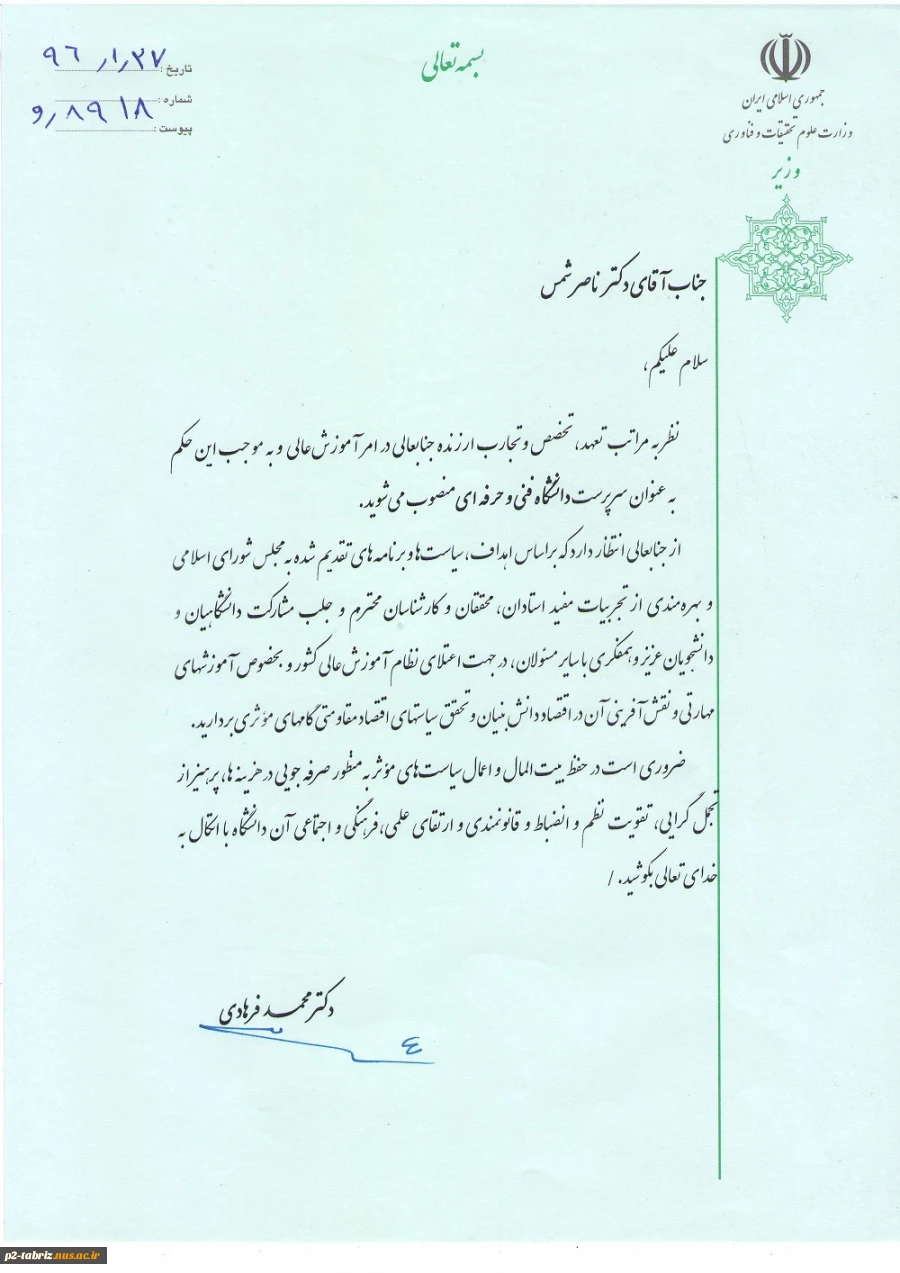 بسمه تعالی
جمهوری اسلامی ایران
وزارت علوم تحقیقات و فناوری
وزیر
تاریخ : ۹۶٫۱٫۲۷
شماره : ۸۹۱۸٫و
پیوست :
جناب آقای دکتر ناصر شمس
سلام علیکم،
نظر به مراتب تعهد، تخصص و تجارب ارزنده جنابعالی در امر آموزش عالی و به موجب این حکم
به عنوان سرپرست دانشگاه فنی و حرفه ای منصوب می شوید.
از جنابعالی انتظار دارد که براساس اهداف، سیاست ها و برنامه های تقدیم شده به مجلس شورای اسلامی
و بهره مندی از تجربیات مفید استادان، محققان و کارشناسان محترم و جلب مشارکت دانشگاهیان و
دانشجویان عزیز و همفکری با سایر مسئولان، در جهت اعتلای نظام آموزش عالی کشور و بخصوص آموزشهای
مهارتی و نقش آفرینی آن در اقتصاد دانش بنیان و تحقق سیاستهای اقتصاد مقاومتی گامهای مؤثری بردارید.
ضروری است در حفظ بیت المال و اعمال سیاست های مؤثر به منظور صرفه جویی در هزینه ها، پرهیز از
تجمل گرایی، تقویت نظم و انضباط و قانونمندی و ارتقای علمی، فرهنگی و اجتماعی آن دانشگاه با اتکال به
خدای تعالی بکوشید. /
دکتر محمد فرهادی
p2-tabriz.nus.ac.ir